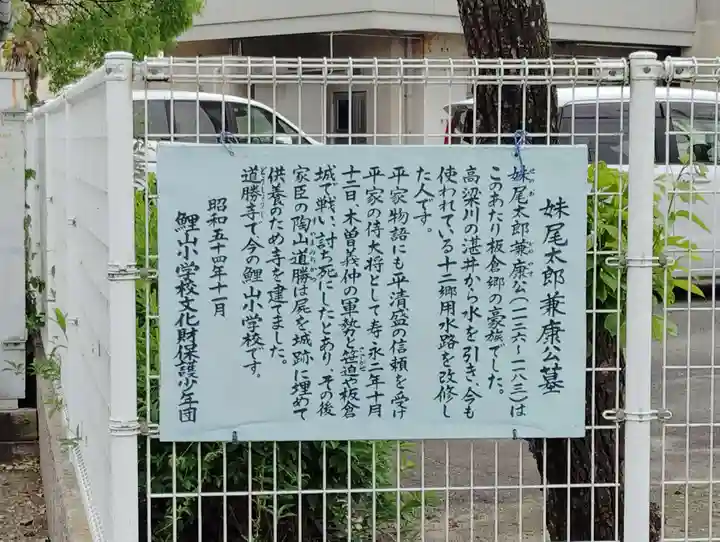 妹尾太郎兼康公墓
妹尾太郎兼康公(一一二六〜一一八三)は
このあたり板倉郷の豪族でした。
高梁川の湛井から水を引き、今も
使われている十二郷用水路を改修し
た人です。
平家物語にも平清盛の信頼を受け
平家の侍大将として寿永二年十月
十二日、木曽義仲の軍勢と笹迫や板倉
城で戦い、討ち死にしたとあり、その後
家臣の陶山道勝は屍を城跡に埋めて
供養のため寺を建てました。
道勝寺で今の鯉山小学校です。
昭和五十四年十一月
鯉山小学校文化財保護少年団